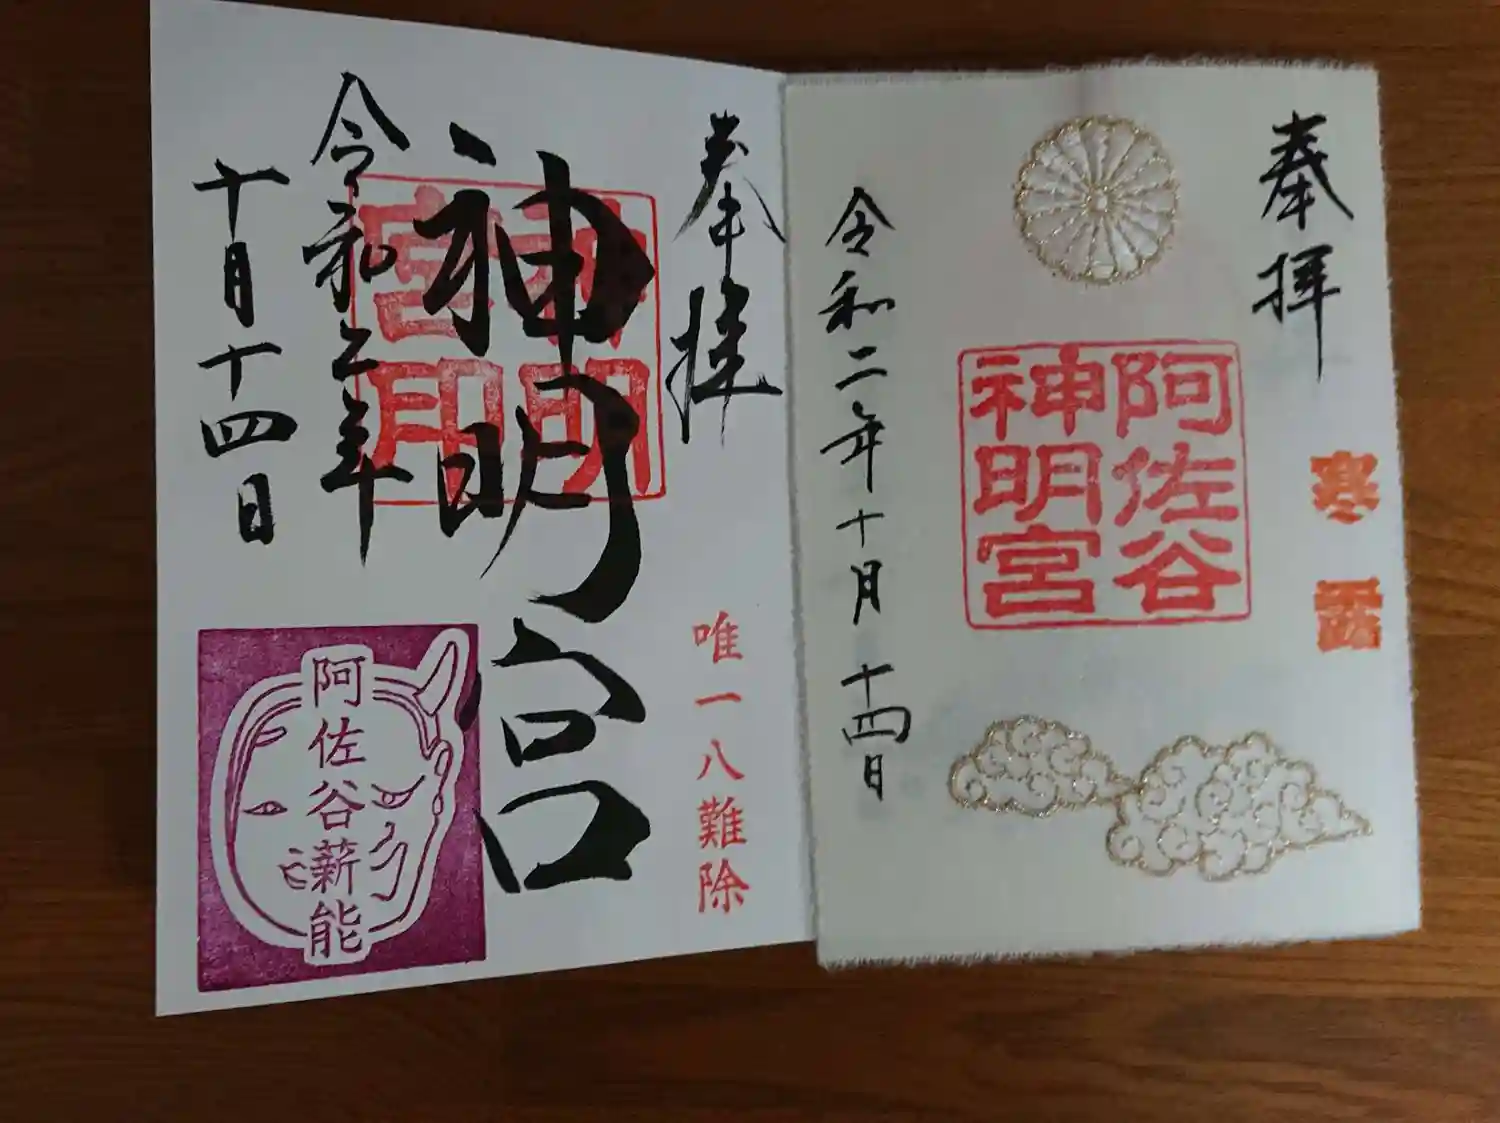 奉拝
寒露
阿佐谷
神明宮
令和二年十月十四日
奉拝
唯一八難除
神明宮
神明
宮印
令和二年
十月十四日
阿佐谷薪能